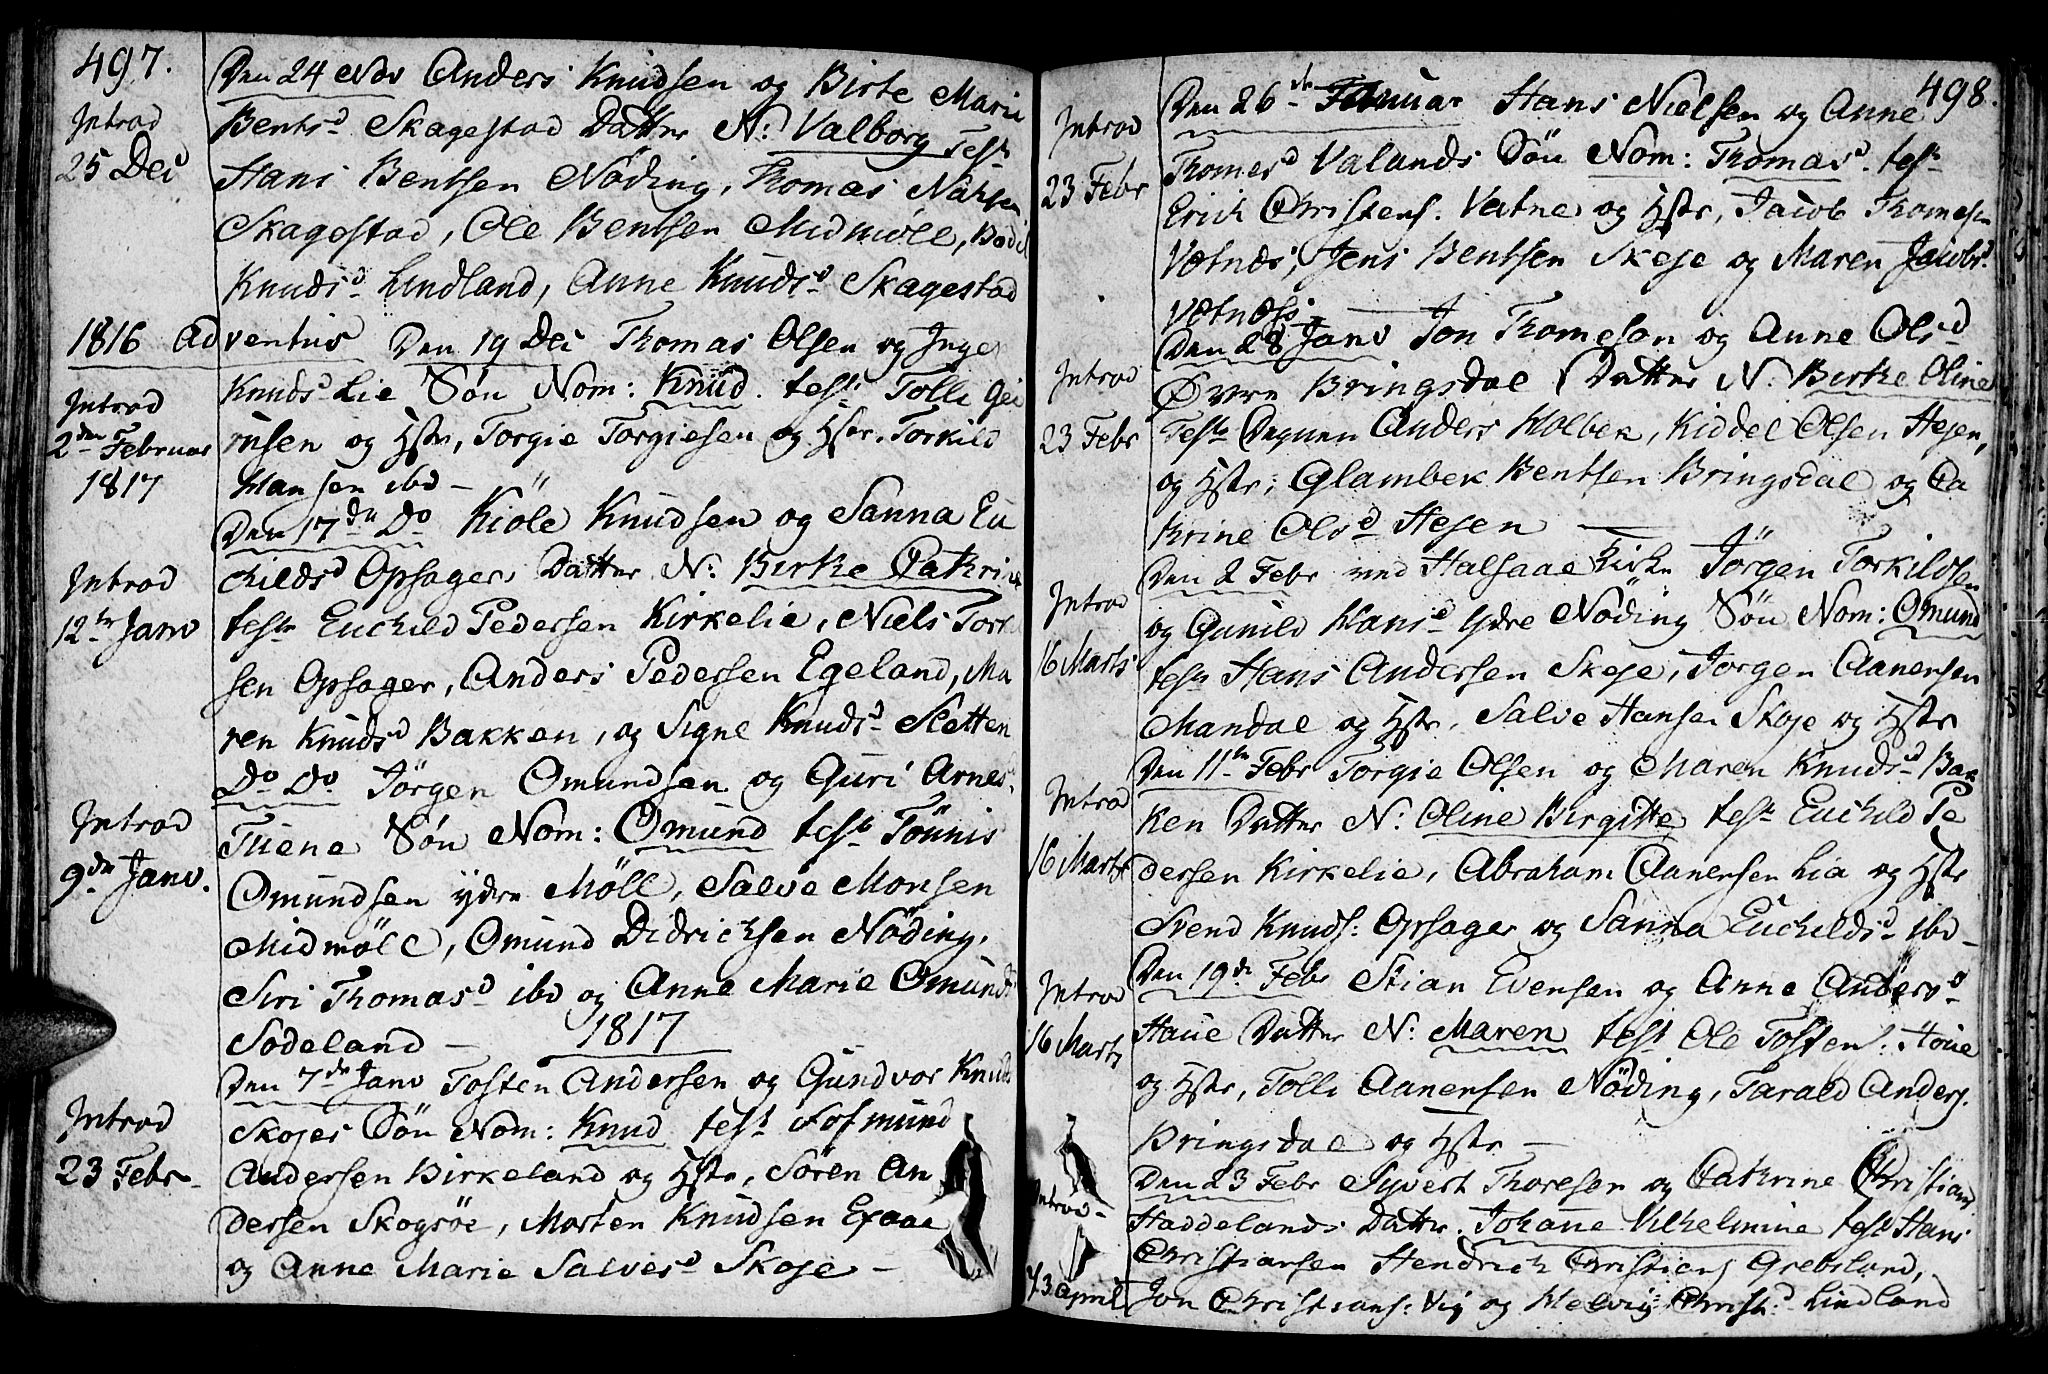 497.
Introd
25 Dec
Den 24 Nov Anders Knudsen og Birte Marie
Bentsd Skagestad Datter N: Valborg Test
Hans Bentsen Nöding, Thomas
Skagestad, Ole Bentsen Midmöll, Bodil
Knudsd Lindland, Anne Knudsd Skagestad
1816 Adventus Den 19 Dec Thomas Olsen og Inger
Introd
2den Februar
1817
Knudsd Lie Sön Nom: Knud. test Tolli Gei
rusen og Hstr, Torgie Torgiesen og Hstr. Torkild
Hansen ibd –
Den 17de Do Kiöle Knudsen og Sanna Eu
Introd
12te Janv
childsd Opsager Datter N: Birthe Cathrine
test Euchild Pedersen Kirkelie, Niels Tor
sen Opsager, Anders Pedersen Egeland, Ma
ren Knudsd Bakken, og Signe Knudsd Sletten
Do Do Jörgen Omundsen og Guri Arnes
Introd
9de Janv.
Tuene Sön Nom: Omund test Tönnis
Omundsen ydre Möll, Salve Monsen
Midmöll, Omund Didrichsen Nöding,
Siri Thomasd ibd og Anne Marie Omunds
Södeland –
1817
Den 7de Janv Tosten Andersen og Gundvor Knuds
Introd
23 Febr
Skoges Sön Nom: Knud test Aasmund
Andersen Birkeland og Hstr, Sören An
dersen Skogsöe, Morten Knudsen Exaae
og Anne Marie Salvesd Skoje –
498.
Introd
23 Febr
Den 26de Januar Hans Nielsen og Anne
Thomesd Valands Sön Nom: Thomas. test
Erich Christens. Vatne og Hstr, Jacob Thomesen
Vatnes, Jens Bentsen Skeje og Maren Jacobsd
Vatnes
Den 28 Janv Jon Thomeson og Anne Olsd
Introd
23 Febr
Övre Bringsdal Datter N. Birthe Oline
Test Degnen Anders Holbek, Kiddel Olsen Hesen,
og Hstr, Glambek Bentsen Bringsdal og Ca
thrine Olsd Hesen
Den 2 Febr ved Halsaae Kirke Jörgen Torkildsen
Introd
16 Marts
og Gunild Hansd Ydre Nöding Sön Nom: Omund
test Hans Andersen Skeje, Jörgen Aanensen
Mandal og Hstr, Salve Hansen Skoje og Hstr
Den 11te Febr Torgie Olsen og Maren Knudsd Bak
Introd
16 Marts
ken Datter N: Oline Birgitte test Euchild Pe
dersen Kirkelie, Abraham Aanensen Lia og Hstr
Svend Knuds: Opsager og Sanna Euchildsd ibd –
Den 19de Febr Stian Evensen og Anne Andersd
Introd
16 Marts
Haue Datter N: Maren test Ole Tostens: Höue
og Hstr, Tolli Aanensen Nöding, Tarald Anders.
Bringsdal og Hstr –
Den 23 Febr Syvert Thoresen og Cathrine Christians
Introd
Haddelands Datter. Johanne Vilhelmine test Hans
Christiansen Hendrich Christians Grebsland,
13 April
Jon Christians: Vig og Helvig Christd Lindland